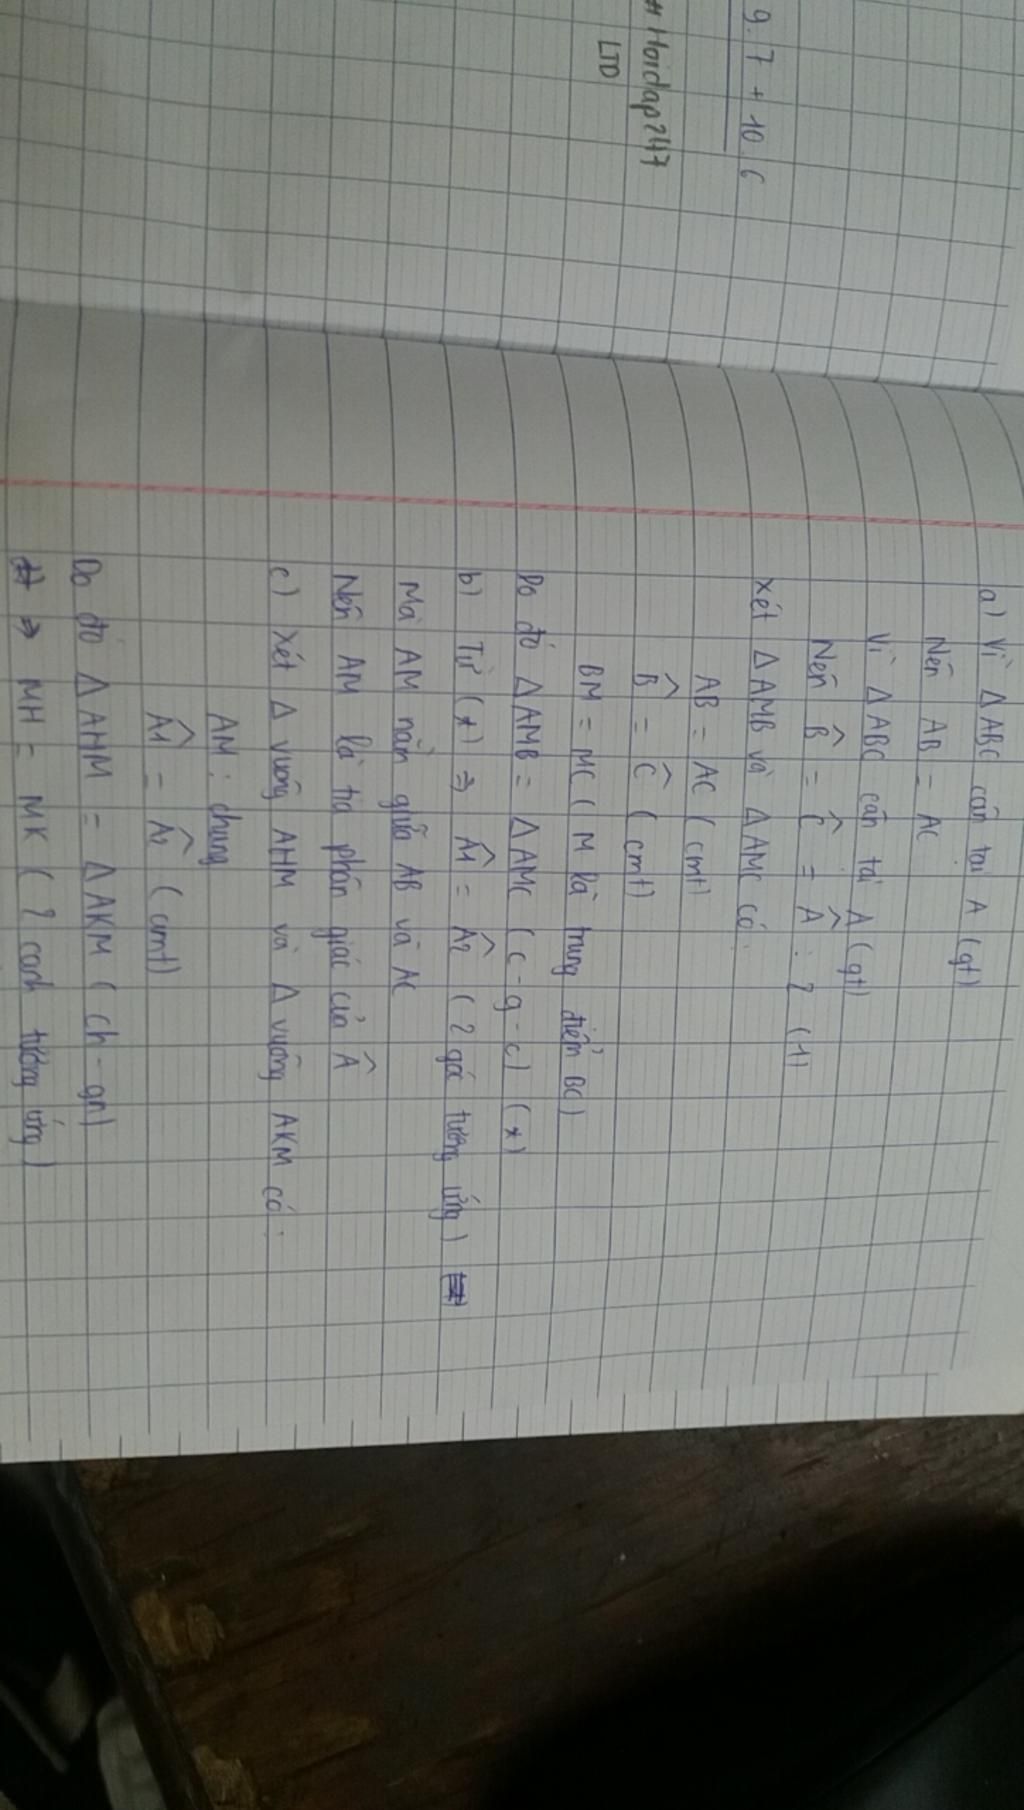 9.7 + 10.6
# Hoidap247
LTD
a) Vì Δ ABC cân tại A (gt)
Nên AB = AC
Vì Δ ABC cân tại A (gt)
Nên B̂ = Ĉ = Â : 2 (1)
Xét Δ AMB và Δ AMC có:
AB = AC (cmt)
B̂ = Ĉ (cmt)
BM = MC (M là trung điểm BC)
Do đó Δ AMB = Δ AMC (c-g-c) (*)
b) Từ (*) ⇒ Â1 = Â2 (2 góc tương ứng)
Mà AM nằm giữa AB và AC
Nên AM là tia phân giác của Â
c) Xét Δ vuông AHM và Δ vuông AKM có:
AM : chung
Â1 = Â2 (cmt)
Do đó Δ AHM = Δ AKM (ch-gn)
⇒ MH = MK (2 cạnh tương ứng)